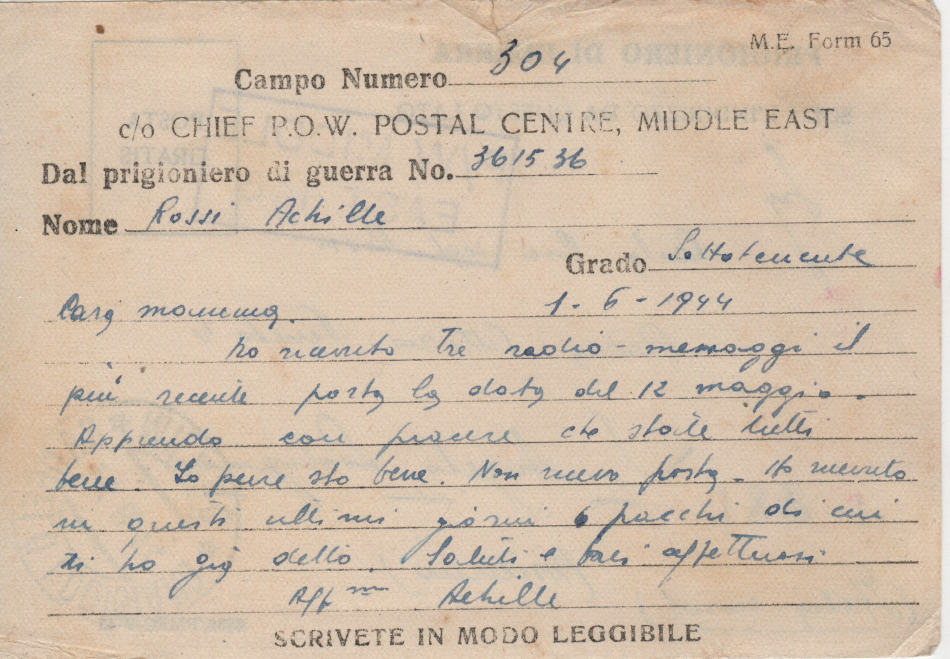 M.E. Form 65
Campo Numero 304
c/o CHIEF P.O.W. POSTAL CENTRE, MIDDLE EAST
Dal prigioniero di guerra No. 361536
Nome Rossi Achille
Grado Sottotenente
Cara mamma. 1-6-1944
ho ricevuto tre radio-messaggi il
più recente porta la data del 12 maggio.
Apprendo con piacere che state tutti
bene. Io pure sto bene. Non ricevo posta. Ho ricevuto
in questi ultimi giorni 6 pacchi di cui
ti ho già detto. Saluti e baci affettuosi
Aff.mo Achille
SCRIVETE IN MODO LEGGIBILE